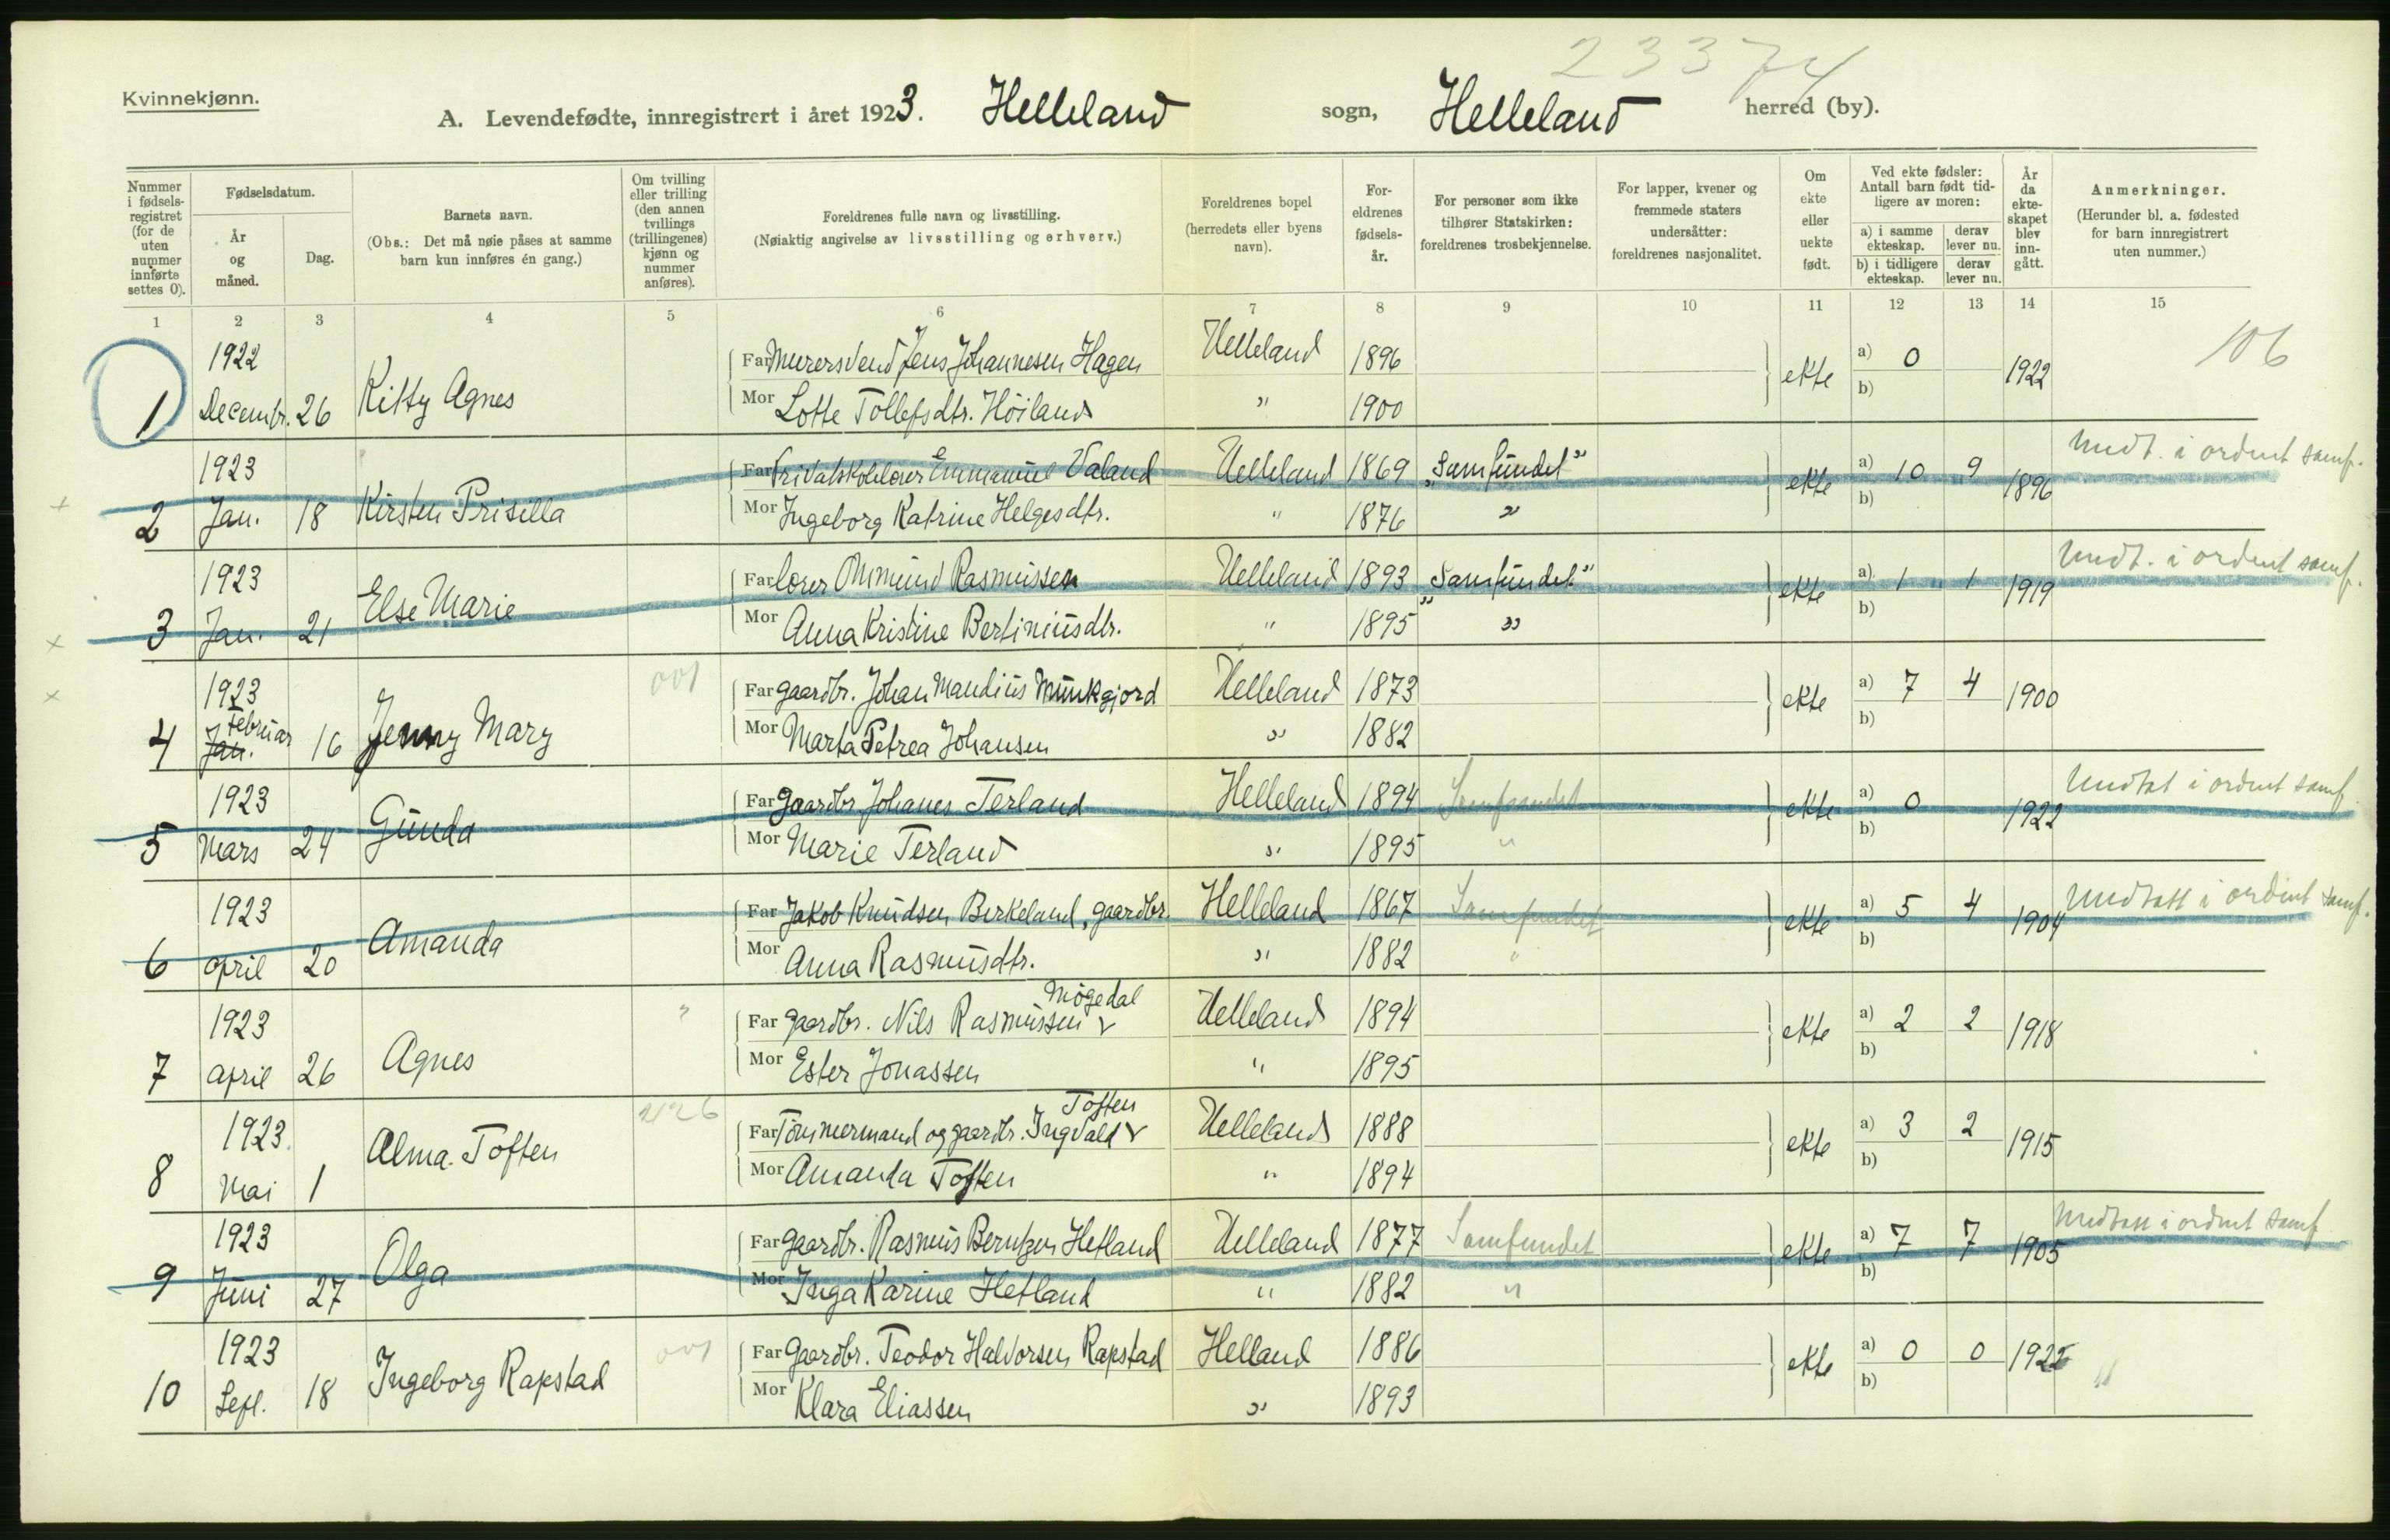 23374
Kvinnekjønn.
A. Levendefødte, innregistrert i året 1923. Helleland sogn, Helleland herred (by).
Nummer i fødselsregistret (for de uten nummer innførte settes 0).
Fødselsdatum.
År og måned.
Dag.
Barnets navn.
(Obs.: Det må nøie påses at samme barn kun innføres én gang.)
Om tvilling eller trilling (den annen tvillings (trillingenes) kjønn og nummer anføres).
Foreldrenes fulle navn og livsstilling.
(Nøiaktig angivelse av livsstilling og erhverv.)
Foreldrenes bopel (herredets eller byens navn).
Foreldrenes fødselsår.
For personer som ikke tilhører Statskirken: foreldrenes trosbekjennelse.
For lapper, kvener og fremmede staters undersåtter: foreldrenes nasjonalitet.
Om ekte eller uekte født.
Ved ekte fødsler: Antall barn født tidligere av moren:
a) i samme ekteskap. derav lever nu.
b) i tidligere ekteskap. derav lever nu.
År da ekteskapet blev inngått.
Anmerkninger.
(Herunder bl. a. fødested for barn innregistrert uten nummer.)
1 2 3 4 5 6 7 8 9 10 11 12 13 14 15
1922 Far Murersvend Jens Johannesen Hagen Helleland 1896 ekte a) 0 1922 106
1 Decembr. 26 Kitty Agnes Mor Lotte Tollefsdtr. Höiland " 1900 b)
1923 Far Privatskolelærer Emmanuel Valand Helleland 1869 "Samfundet" ekte a) 10 9 1896 Undt. i ordent samf.
2 Jan. 18 Kirsten Prisilla Mor Ingeborg Katrine Helgesdtr. " 1876 " b)
1923 Far lærer Ommund Rasmussen Helleland 1893 "Samfundet" ekte a) 1 1 1919 Undt. i ordent samf.
3 Jan. 21 Else Marie Mor Anna Kristine Bertiniusdtr. " 1895 " b)
1923 001 Far gaardbr. Johan Mandius Munkgjord Helleland 1873 ekte a) 7 4 1900
4 Jan. Februar 16 Jenny Mary Mor Marta Petrea Johansen " 1882 b)
1923 Far gaardbr. Johanes Terland Helleland 1894 Samfundet ekte a) 0 1922 Undtat i ordent samf.
5 Mars 24 Gunda Mor Marie Terland " 1895 " b)
1923 Far Jakob Knudsen Birkeland, gaardbr. Helleland 1867 Samfundet ekte a) 5 4 1904 Undtatt i ordent samf.
6 April 20 Amanda Mor Anna Rasmusdtr. " 1882 " b)
1923 " Far gaardbr. Nils Rasmussen Mögedal Helleland 1894 ekte a) 2 2 1918
7 April 26 Agnes Mor Ester Jonassen " 1895 b)
1923. Far Tömmermand og gaardbr. Ingvald Toften Helleland 1888 ekte a) 3 2 1915
8 Mai 1 Alma Toften Mor Amanda Toften " 1894 b)
1923 Far gaardbr. Rasmus Berntzen Hetland Helleland 1877 Samfundet ekte a) 7 7 1905 Undtatt i ordent samf
9 Juni 27 Olga Mor Inga Karine Hetland " 1882 " b)
1923 001 Far Gaardbr. Teodor Halvorsen Rapstad Helland 1886 ekte a) 0 0
10 Sept. 18 Ingeborg Rapstad Mor Klara Eliassen " 1893 b)